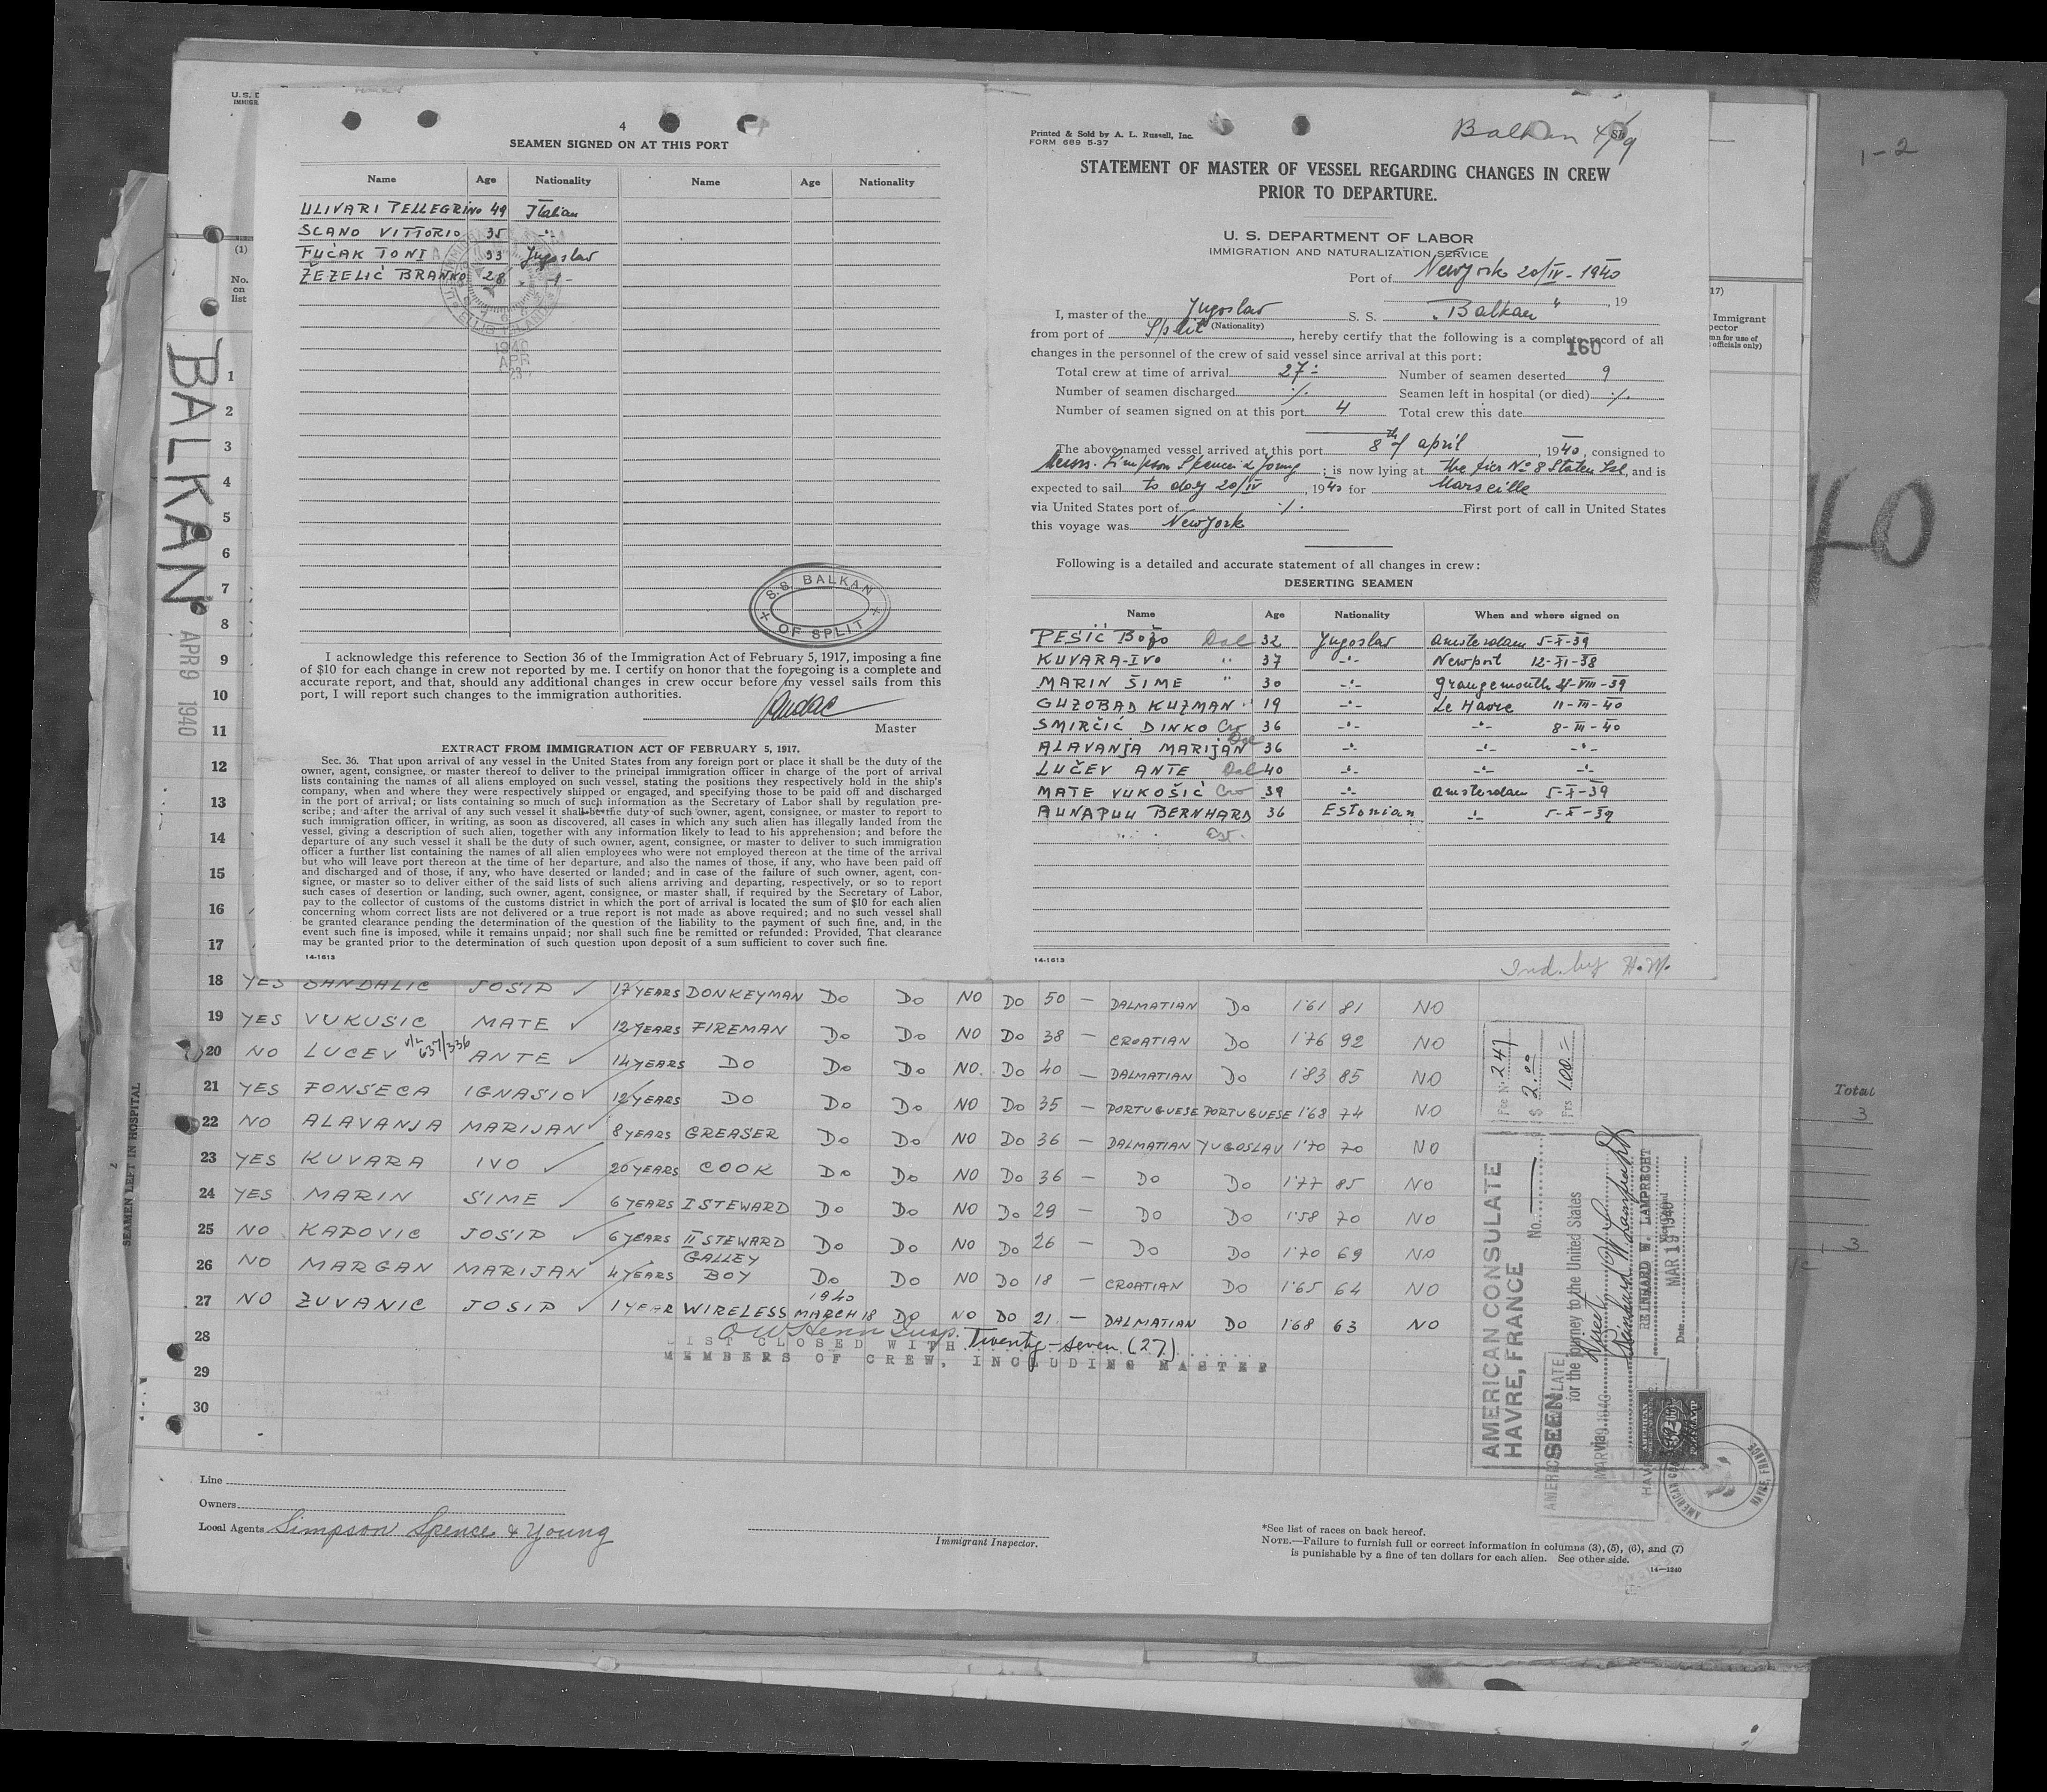 4
SEAMEN SIGNED ON AT THIS PORT
Name Age Nationality Name Age Nationality
ULIVARI PELLEGRINO 49 Italian
SCANO VITTORIO 35 -"-
FUČAK TONI 33 Jugoslav
ŽEZELIĆ BRANKO 28 -"-
ELLIS ISLAND
1940
APR
23
S.S. BALKAN
OF SPLIT
I acknowledge this reference to Section 36 of the Immigration Act of February 5, 1917, imposing a fine
of $10 for each change in crew not reported by me. I certify on honor that the foregoing is a complete and
accurate report, and that, should any additional changes in crew occur before my vessel sails from this
port, I will report such changes to the immigration authorities.
Master
EXTRACT FROM IMMIGRATION ACT OF FEBRUARY 5, 1917.
Sec. 36. That upon arrival of any vessel in the United States from any foreign port or place it shall be the duty of the
owner, agent, consignee, or master thereof to deliver to the principal immigration officer in charge of the port of arrival
lists containing the names of all aliens employed on such vessel, stating the positions they respectively hold in the ship's
company, when and where they were respectively shipped or engaged, and specifying those to be paid off and discharged
in the port of arrival; or lists containing so much of such information as the Secretary of Labor shall by regulation pre-
scribe; and after the arrival of any such vessel it shall be the duty of such owner, agent, consignee, or master to report to
such immigration officer, in writing, as soon as discovered, all cases in which any such alien has illegally landed from the
vessel, giving a description of such alien, together with any information likely to lead to his apprehension; and before the
departure of any such vessel it shall be the duty of such owner, agent, consignee, or master to deliver to such immigration
officer a further list containing the names of all alien employees who were not employed thereon at the time of the arrival
but who will leave port thereon at the time of her departure, and also the names of those, if any, who have been paid off
and discharged and of those, if any, who have deserted or landed; and in case of the failure of such owner, agent, con-
signee, or master so to deliver either of the said lists of such aliens arriving and departing, respectively, or so to report
such cases of desertion or landing, such owner, agent, consignee, or master shall, if required by the Secretary of Labor,
pay to the collector of customs of the customs district in which the port of arrival is located the sum of $10 for each alien
concerning whom correct lists are not delivered or a true report is not made as above required; and no such vessel shall
be granted clearance pending the determination of the question of the liability to the payment of such fine, and, in the
event such fine is imposed, while it remains unpaid; nor shall such fine be remitted or refunded: Provided, That clearance
may be granted prior to the determination of such question upon deposit of a sum sufficient to cover such fine.
14-1613
Printed & Sold by A. L. Russell, Inc.
FORM 669 5-37
Balkan 4/9
STATEMENT OF MASTER OF VESSEL REGARDING CHANGES IN CREW
PRIOR TO DEPARTURE.
U. S. DEPARTMENT OF LABOR
IMMIGRATION AND NATURALIZATION SERVICE
Port of New York 20/IV - 1940
, 19
I, master of the Jugoslav S. S. "Balkan"
(Nationality)
from port of Split, hereby certify that the following is a complete record of all
160
changes in the personnel of the crew of said vessel since arrival at this port:
Total crew at time of arrival 27 Number of seamen deserted 9
Number of seamen discharged ·/. Seamen left in hospital (or died) ·/.
Number of seamen signed on at this port 4 Total crew this date
The above named vessel arrived at this port 8th of april, 1940, consigned to
Messrs. Simpson Spence & Young; is now lying at the pier No 8 Staten Isl, and is
expected to sail to day 20/IV, 1940 for Marseille
via United States port of ·/. First port of call in United States
this voyage was New York
Following is a detailed and accurate statement of all changes in crew:
DESERTING SEAMEN
Name Age Nationality When and where signed on
PEŠIĆ BOŽO Dal 32 Jugoslav Amsterdam 5-X-39
KUVARA-IVO " 37 -"- Newport 12-XI-38
MARIN ŠIME " 30 -"- Grangemouth 21-VIII-39
GUZOBAD KUZMAN " 19 -"- Le Havre 11-III-40
SMIRČIĆ DINKO Cro 36 -"- -"- 8-III-40
ALAVANJA MARIJAN Dal 36 -"- -"- -"-
LUČEV ANTE Dal 40 -"- -"- -"-
MATE VUKOŠIĆ Cro 39 -"- Amsterdam 5-X-39
AUNAPUU BERNHARD 36 Estonian -"- 5-X-39
Est.
14-1613
Ind. by H. M.
BALKAN
APR 9 1940
SEAMEN LEFT IN HOSPITAL
(1)
No.
on
list
1
2
3
4
5
6
7
8
9
10
11
12
13
14
15
16
17
18 YES SANDALIC JOSIP 17 YEARS DONKEYMAN DO DO NO DO 50 — DALMATIAN DO 1'61 81 NO
19 YES VUKUSIC MATE 12 YEARS FIREMAN DO DO NO DO 38 — CROATIAN DO 1'76 92 NO
637/336
20 NO LUCEV ANTE 14 YEARS DO DO DO NO DO 40 — DALMATIAN DO 1'83 85 NO
21 YES FONSECA IGNASIO 12 YEARS DO DO DO NO DO 35 — PORTUGUESE PORTUGUESE 1'68 74 NO
22 NO ALAVANJA MARIJAN 8 YEARS GREASER DO DO NO DO 36 — DALMATIAN YUGOSLAV 1'70 70 NO
23 YES KUVARA IVO 20 YEARS COOK DO DO NO DO 36 — DO DO 1'77 85 NO
24 YES MARIN SIME 6 YEARS I STEWARD DO DO NO DO 29 — DO DO 1'58 70 NO
25 NO KAPOVIC JOSIP 6 YEARS II STEWARD DO DO NO DO 26 — DO DO 1'70 69 NO
26 NO MARGAN MARIJAN 4 YEARS GALLEY BOY DO DO NO DO 18 — CROATIAN DO 1'65 64 NO
27 NO ZUVANIC JOSIP 1 YEAR WIRELESS 1940 MARCH 18 DO NO DO 21 — DALMATIAN DO 1'68 63 NO
28
LIST CLOSED WITH Twenty-seven (27)
MEMBERS OF CREW, INCLUDING MASTER
29
30
Line
Owners
Local Agents Simpson Spence & Young
Immigrant Inspector.
*See list of races on back hereof.
NOTE.—Failure to furnish full or correct information in columns (3), (5), (6), and (7)
is punishable by a fine of ten dollars for each alien. See other side.
14—1240
Fee No 247
$ 2.00
Frs 100.=
AMERICAN CONSULATE
HAVRE, FRANCE
No.
SEEN
for the journey to the United States
via
REINHARD W. LAMPRECHT
Date MAR 19 1940
Total
3
3
1-2
40